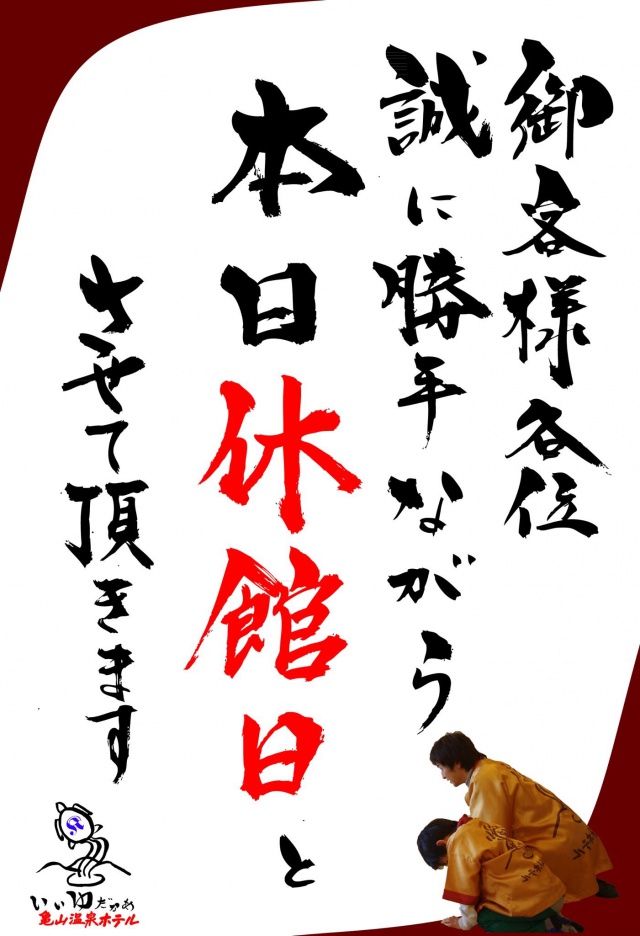 御客様各位
誠に勝手ながら
本日休館日と
させて頂きます
いい ゆ だかあ
亀山温泉ホテル